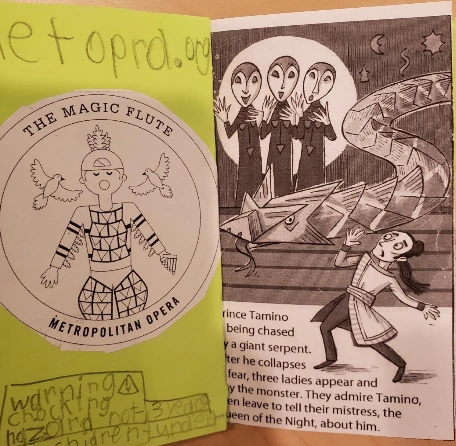 etopra.org
THE MAGIC FLUTE
METROPOLITAN OPERA
warning
chocking
hazord not 3 years
under
rince Tamino
being chased
y a giant serpent.
fter he collapses
fear, three ladies appear and
y the monster. They admire Tamino,
en leave to tell their mistress, the
ueen of the Night, about him.